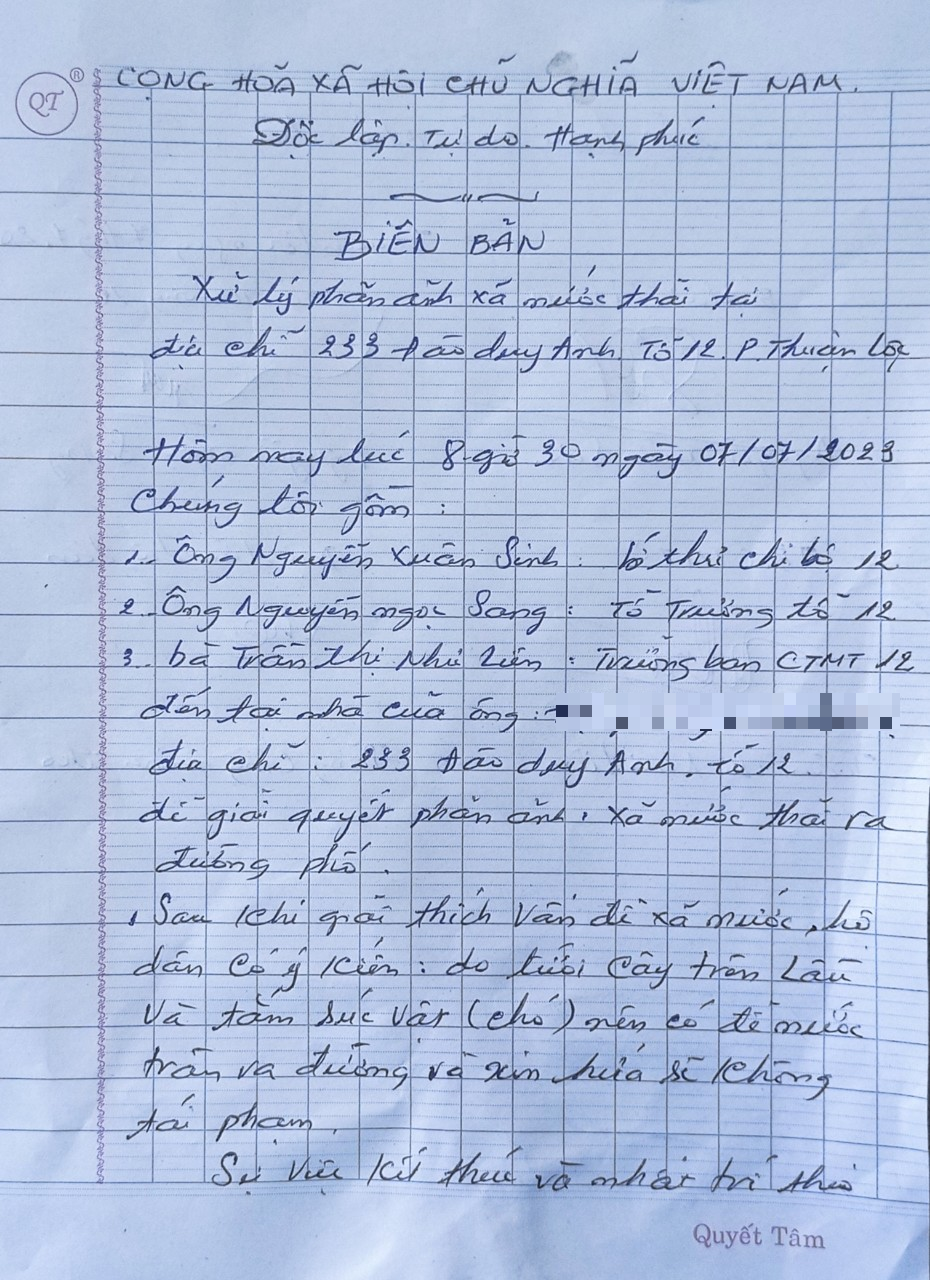 QT ®
CỘNG HOÀ XÃ HỘI CHỦ NGHĨA VIỆT NAM.
Độc lập. Tự do. Hạnh phúc
BIÊN BẢN
Xử lý phản ảnh xả nước thải tại
địa chỉ 233 Đào duy Anh. Tổ 12. P. Thuận Lộc
Hôm nay lúc 8 giờ 30 ngày 07/07/2023
Chúng tôi gồm :
1. Ông Nguyễn Xuân Sinh : bí thư chi bộ 12
2. Ông Nguyễn ngọc Sang : Tổ Trưởng tổ 12
3. bà Trần thị Như Liên : Trưởng ban CTMT 12
đến tại nhà của ông :
địa chỉ : 233 Đào duy Anh. tổ 12.
để giải quyết phản ảnh, xả nước thải ra
đường phố.
, Sau khi giải thích vấn đề xả nước, hộ
dân có ý kiến : do tưới cây trên lầu
và tắm súc vật (chó) nên có để nước
tràn ra đường và xin hứa sẽ không
tái phạm.
Sự việc kết thúc và nhất trí theo
Quyết Tâm